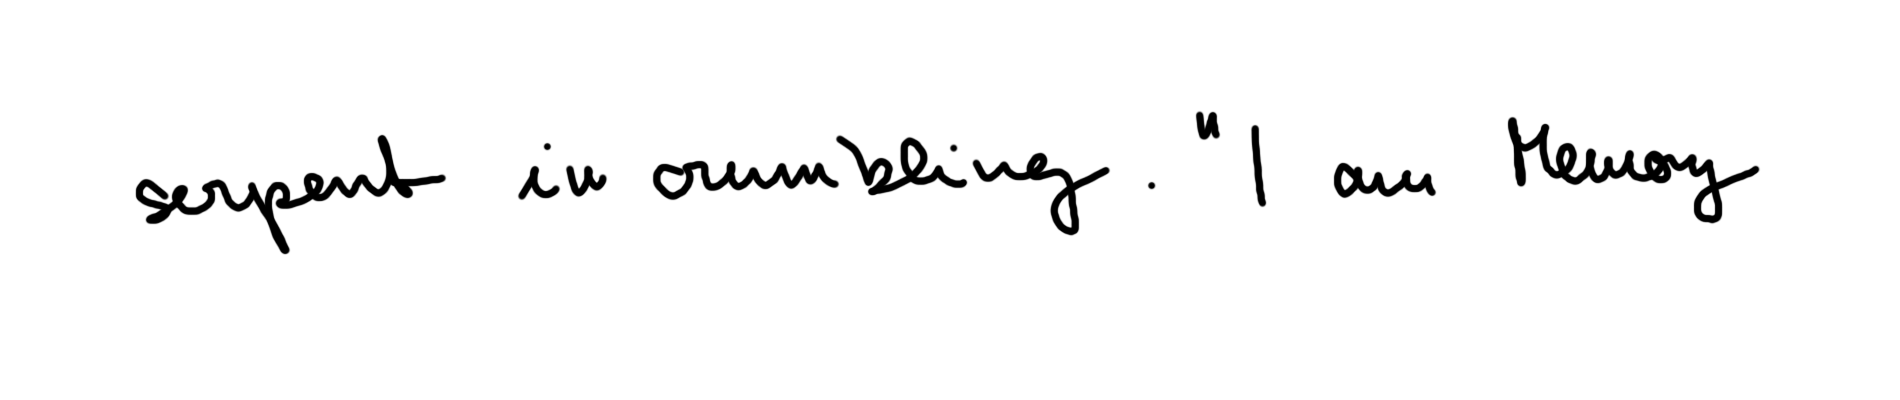 serpent in crumbling. "I am Memory